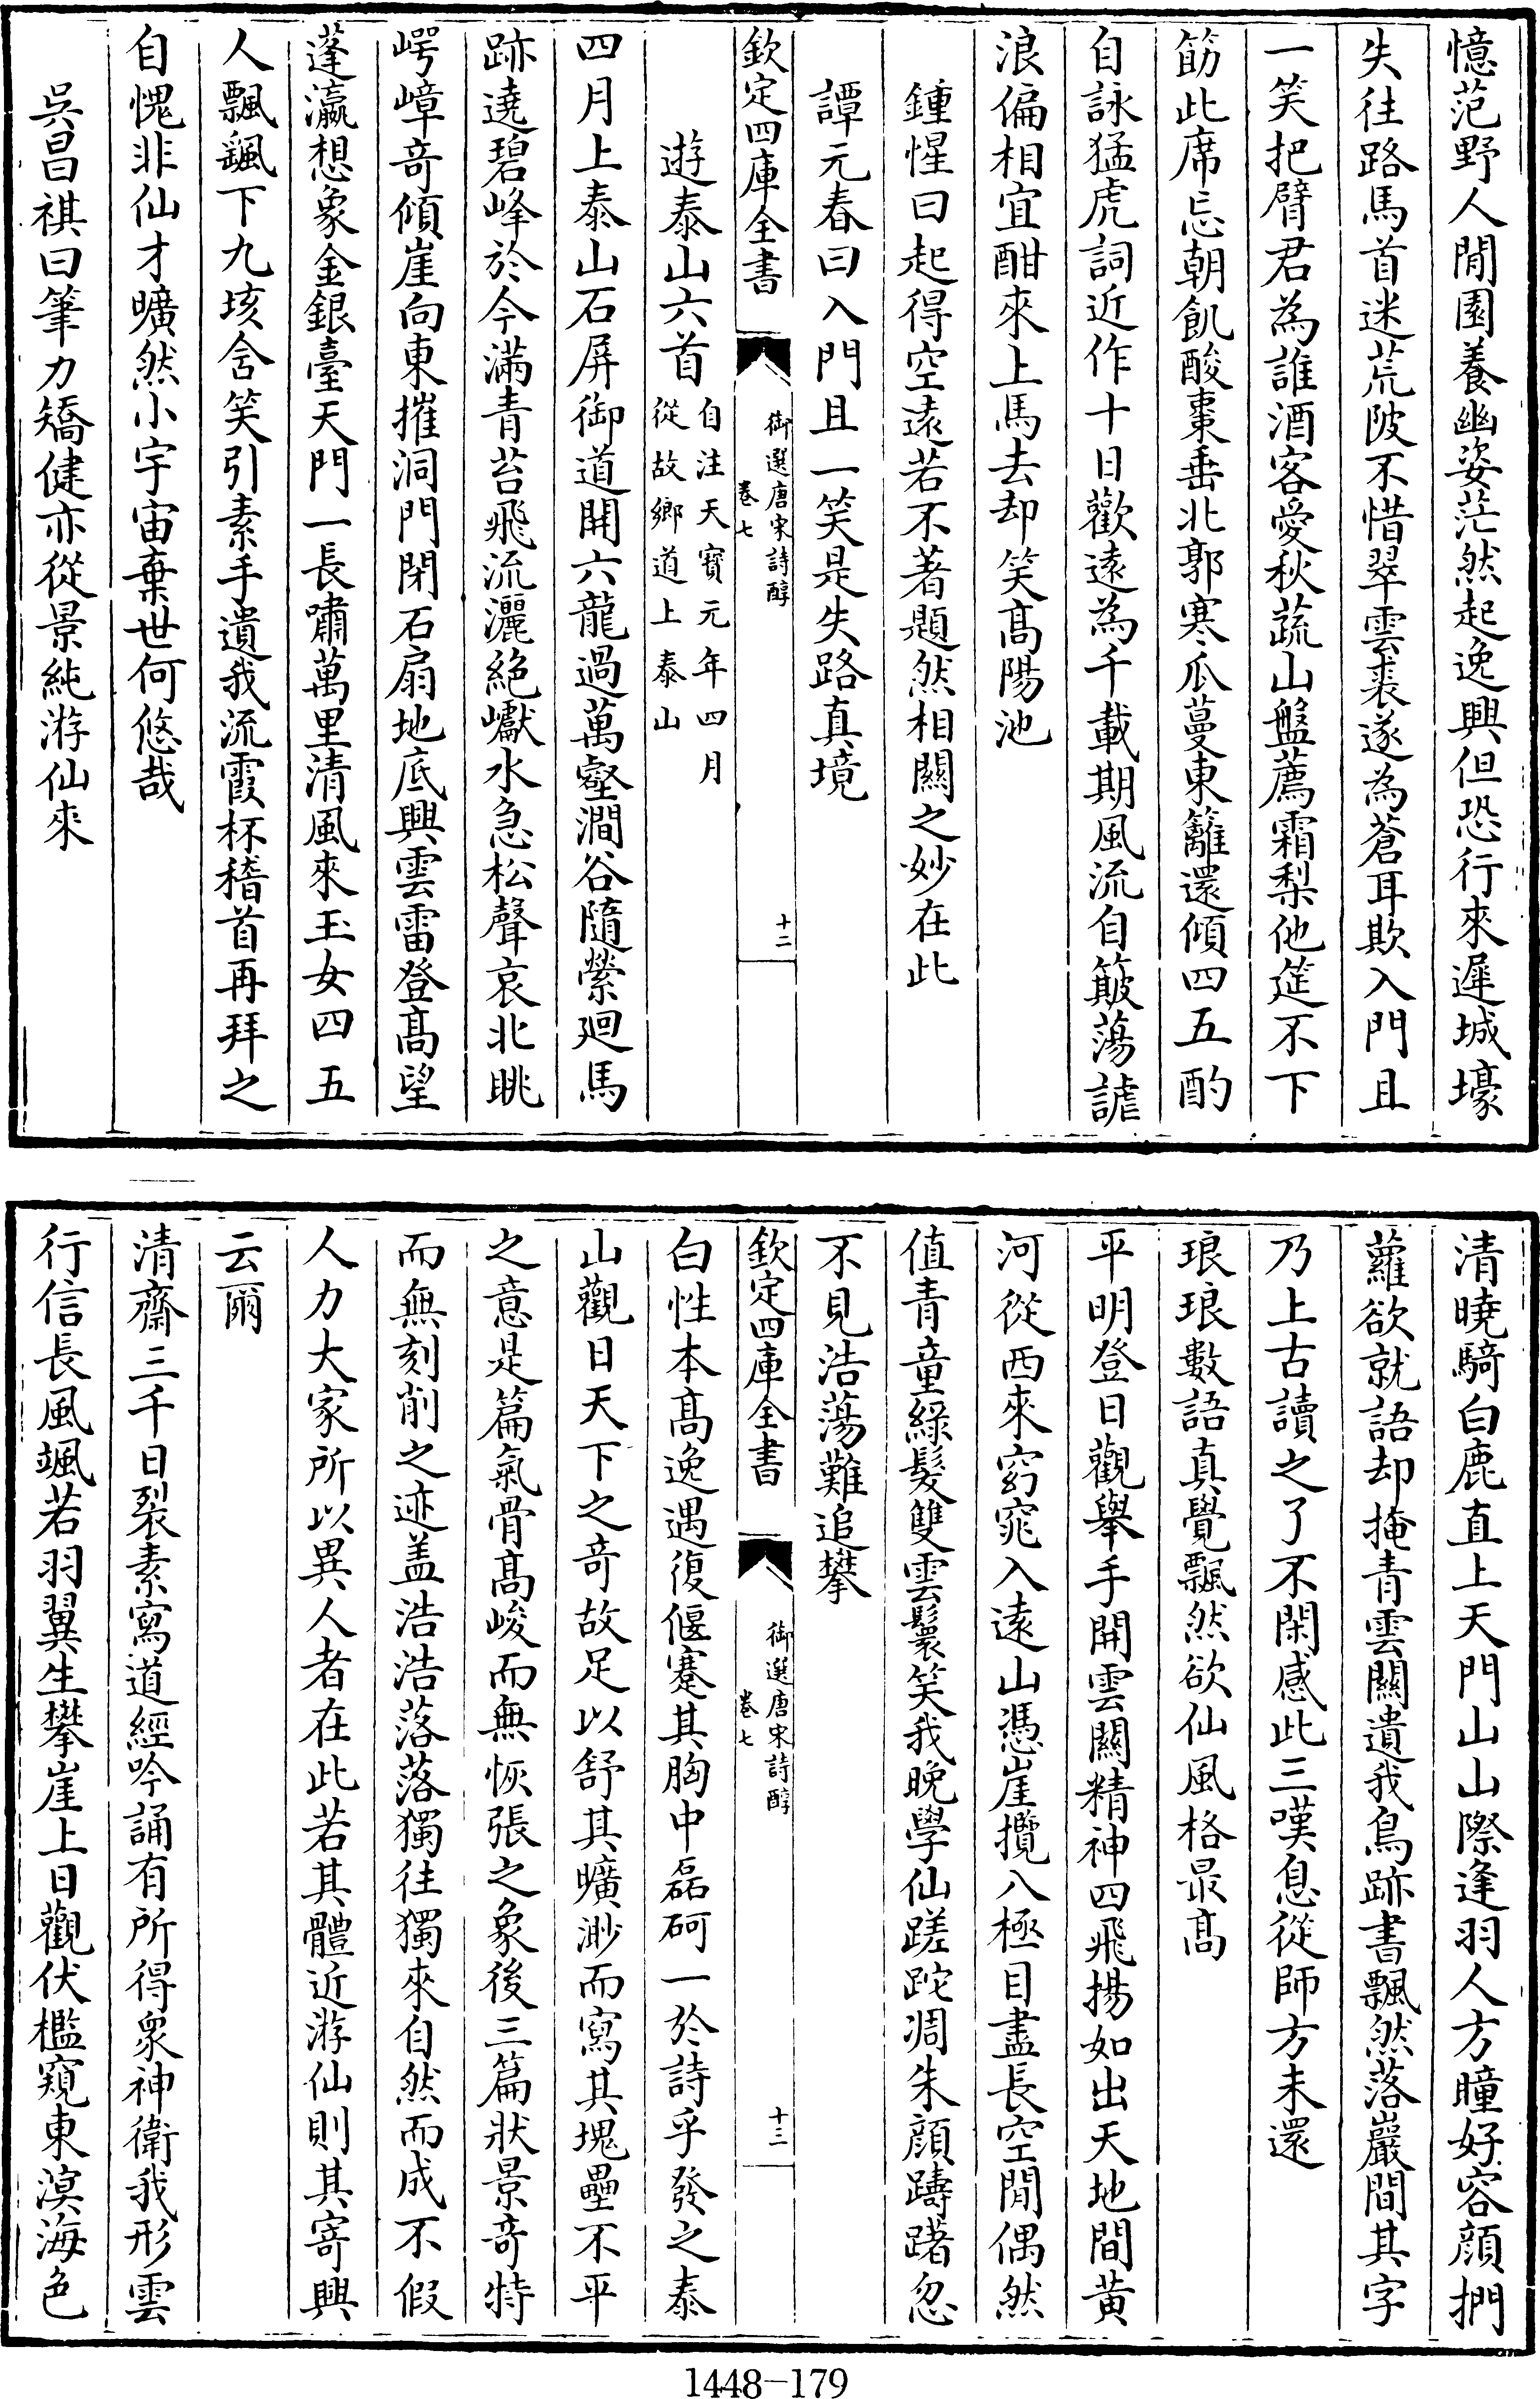 憶范野人閒園養幽姿茫然起逸興但恐行來遲城壕
失往路馬首迷荒陂不惜翠雲裘遂為蒼耳欺入門且
一笑把臂君為誰酒客愛秋蔬山盤薦霜梨他筵不下
筯此席忘朝飢酸棗垂北郭寒瓜蔓東籬還傾四五酌
自詠猛虎詞近作十日歡遠為千載期風流自簸蕩謔
浪偏相宜酣來上馬去却笑髙陽池
鍾惺曰起得空遠若不著題然相關之妙在此
譚元春曰入門且一笑是失路真境
欽定四庫全書
御選唐宋詩醇
卷七
十二
遊泰山六首
自注天寳元年四月
從故鄉道上泰山
四月上泰山石屏御道開六龍過萬壑澗谷隨縈廻馬
跡遶碧峰於今滿青苔飛流灑絶巘水急松聲哀北眺
崿嶂竒傾崖向東摧洞門閉石扇地底興雲雷登髙望
蓬瀛想象金銀臺天門一長嘯萬里清風來玉女四五
人飄飖下九垓含笑引素手遺我流霞杯稽首再拜之
自愧非仙才曠然小宇宙棄世何悠哉
呉昌祺曰筆力矯健亦從景純游仙來
清曉騎白鹿直上天門山山際逢羽人方瞳好容顔捫
蘿欲就語却掩青雲闗遺我鳥跡書飄然落巖間其字
乃上古讀之了不閑感此三嘆息從師方未還
琅琅數語真覺飄然欲仙風格最髙
平明登日觀舉手開雲闗精神四飛揚如出天地間黄
河從西來窈窕入遠山憑崖攬八極目盡長空閒偶然
值青童綠髮雙雲鬟笑我晚學仙蹉跎凋朱顔躊躇忽
不見浩蕩難追攀
欽定四庫全書
御選唐宋詩醇
卷七
十三
白性本髙逸遇復偃蹇其胸中磊砢一於詩乎發之泰
山觀日天下之竒故足以舒其曠渺而寫其塊壘不平
之意是篇氣骨髙峻而無恢張之象後三篇狀景竒特
而無刻削之迹盖浩浩落落獨往獨來自然而成不假
人力大家所以異人者在此若其體近游仙則其寄興
云爾
清齋三千日裂素寫道經吟誦有所得衆神衛我形雲
行信長風颯若羽翼生攀崖上日觀伏檻窺東溟海色
1448-179